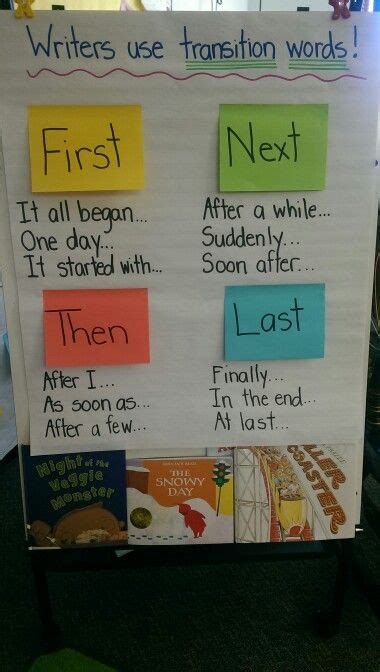 Writers use transition words!
First
It all began...
One day...
It started with...
Next
After a while...
Suddenly...
Soon after...
Then
After I...
As soon as...
After a few...
Last
Finally...
In the end...
At last...
Night of the
Veggie
Monster
THE
SNOWY
DAY
COASTER